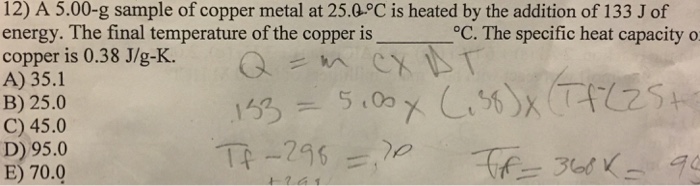 12) A 5.00-g sample of copper metal at 25.0 °C is heated by the addition of 133 J of
energy. The final temperature of the copper is ________ °C. The specific heat capacity o
copper is 0.38 J/g-K.
Q = m C × ΔT
A) 35.1
B) 25.0
133 = 5.00 × (.38) × (Tf - (25 +
C) 45.0
D) 95.0
Tf - 298 = 70
Tf = 368 K = 9
E) 70.0